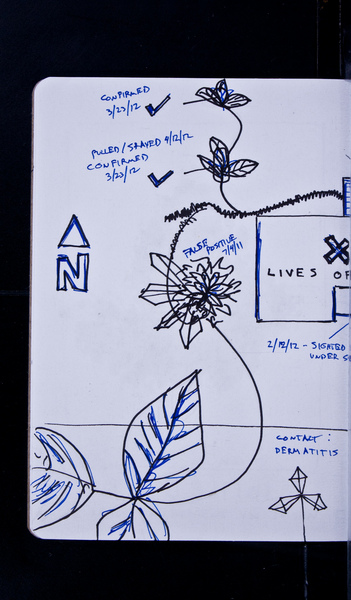 CONFIRMED
3/23/12
PULLED/SPRAYED 4/12/12
CONFIRMED
3/23/12
N
FALSE POSITIVE
7/4/11
LIVES
2/12/12 - SIGHTED
UNDER
CONTACT:
DERMATITIS